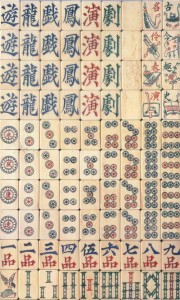 遊龍戲鳳演劇
遊龍戲鳳演劇
遊龍戲鳳演劇
遊龍戲鳳演劇
一二三四伍六七八九
品品品品品品品品品